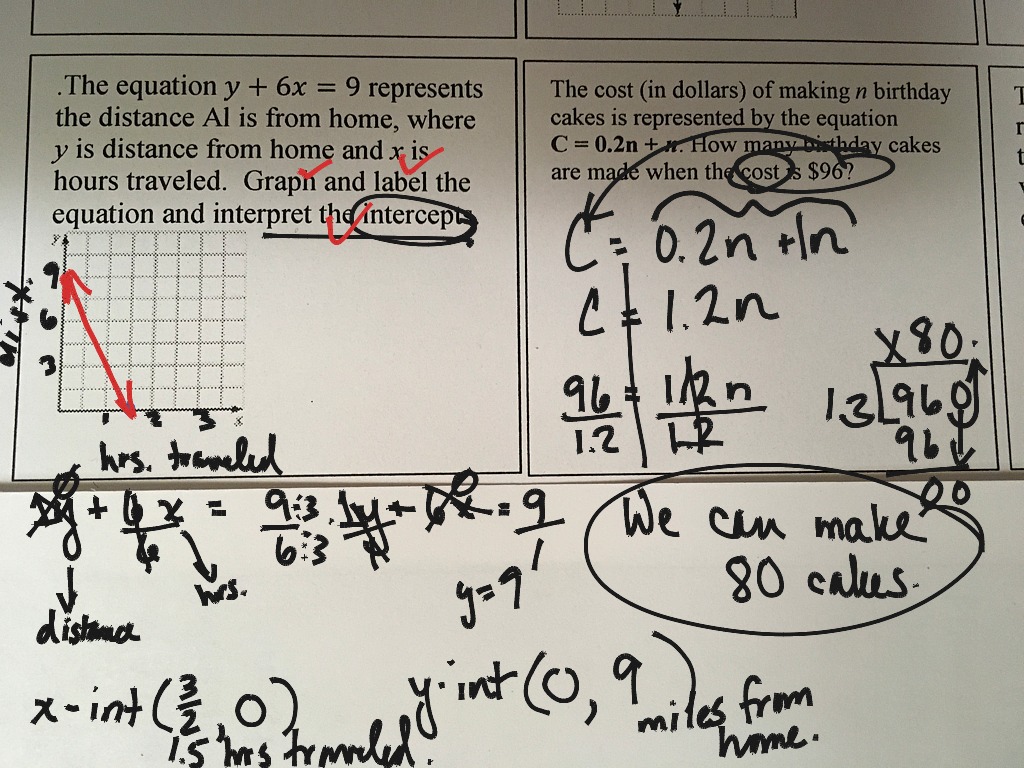 .The equation y + 6x = 9 represents
the distance Al is from home, where
y is distance from home and x is
hours traveled. Graph and label the
equation and interpret the intercepts
y
9
6
3
1 2 3 x
hrs. traveled
The cost (in dollars) of making n birthday
cakes is represented by the equation
C = 0.2n + n. How many birthday cakes
are made when the cost is $96?
C = 0.2n + 1n
C = 1.2n
96 = 1.2n
1.2 1.2
x80.
960
96
00
We can make
80 cakes.
0
y + 6x = 9÷3
6 6÷3
distance
hrs.
0
1y + 6x = 9
1 1
y=9
x-int (3/2, 0)
1.5 hrs traveled.
y-int (0, 9)
miles from
home.